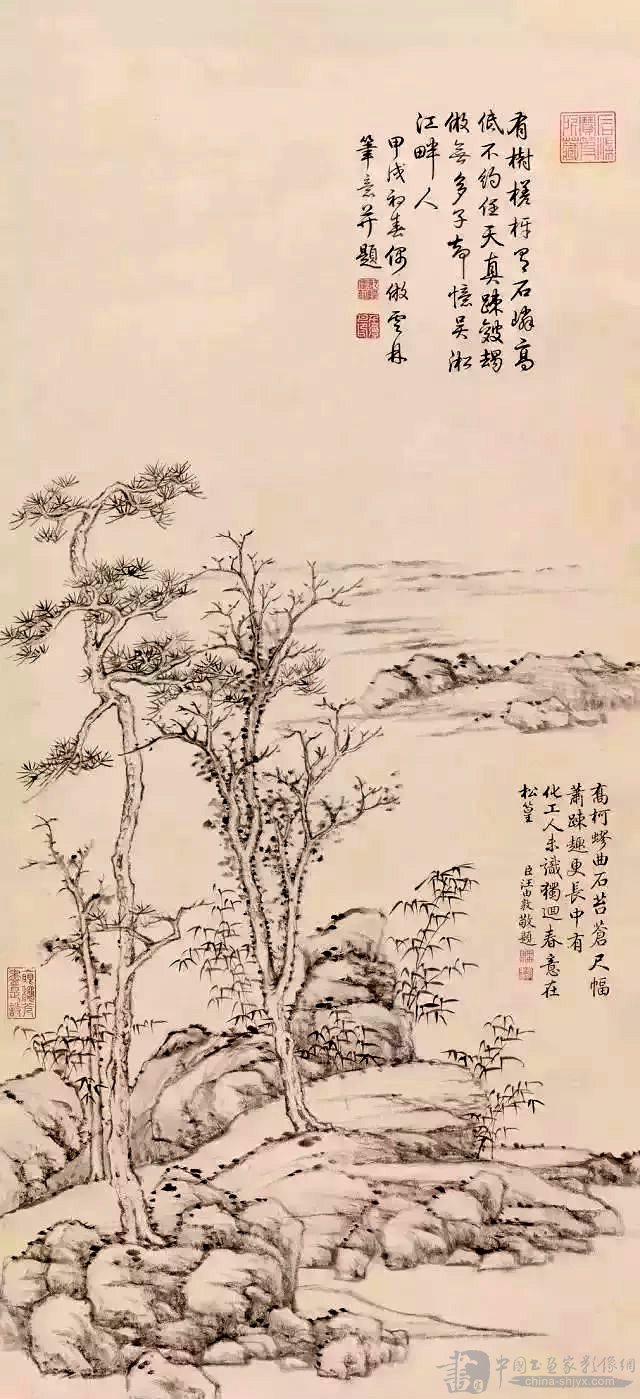 有樹槎枒石嶙高
低不約任天真疎皴
倣無多子却憶吳淞
江畔人
甲戌初春偶倣雲林
筆意并題
喬柯蟉曲石苔蒼尺幅
蕭疎趣更長中有
化工人未識獨迴春意在
松篁
臣汪由敦敬題
書
中国书画家影像網
www.china-shjyx.com